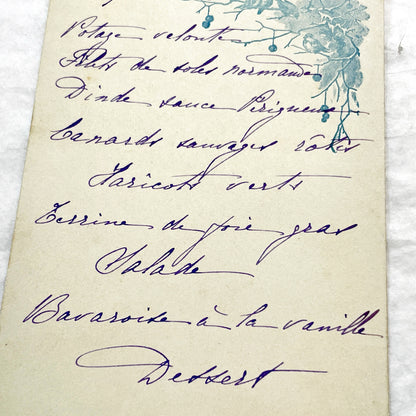 Potage velouté
Filets de soles normande
Dinde sauce Périgueux
Canards sauvages rôtis
Haricots verts
Terrine de foie gras
Salade
Bavaroise à la vanille
Dessert